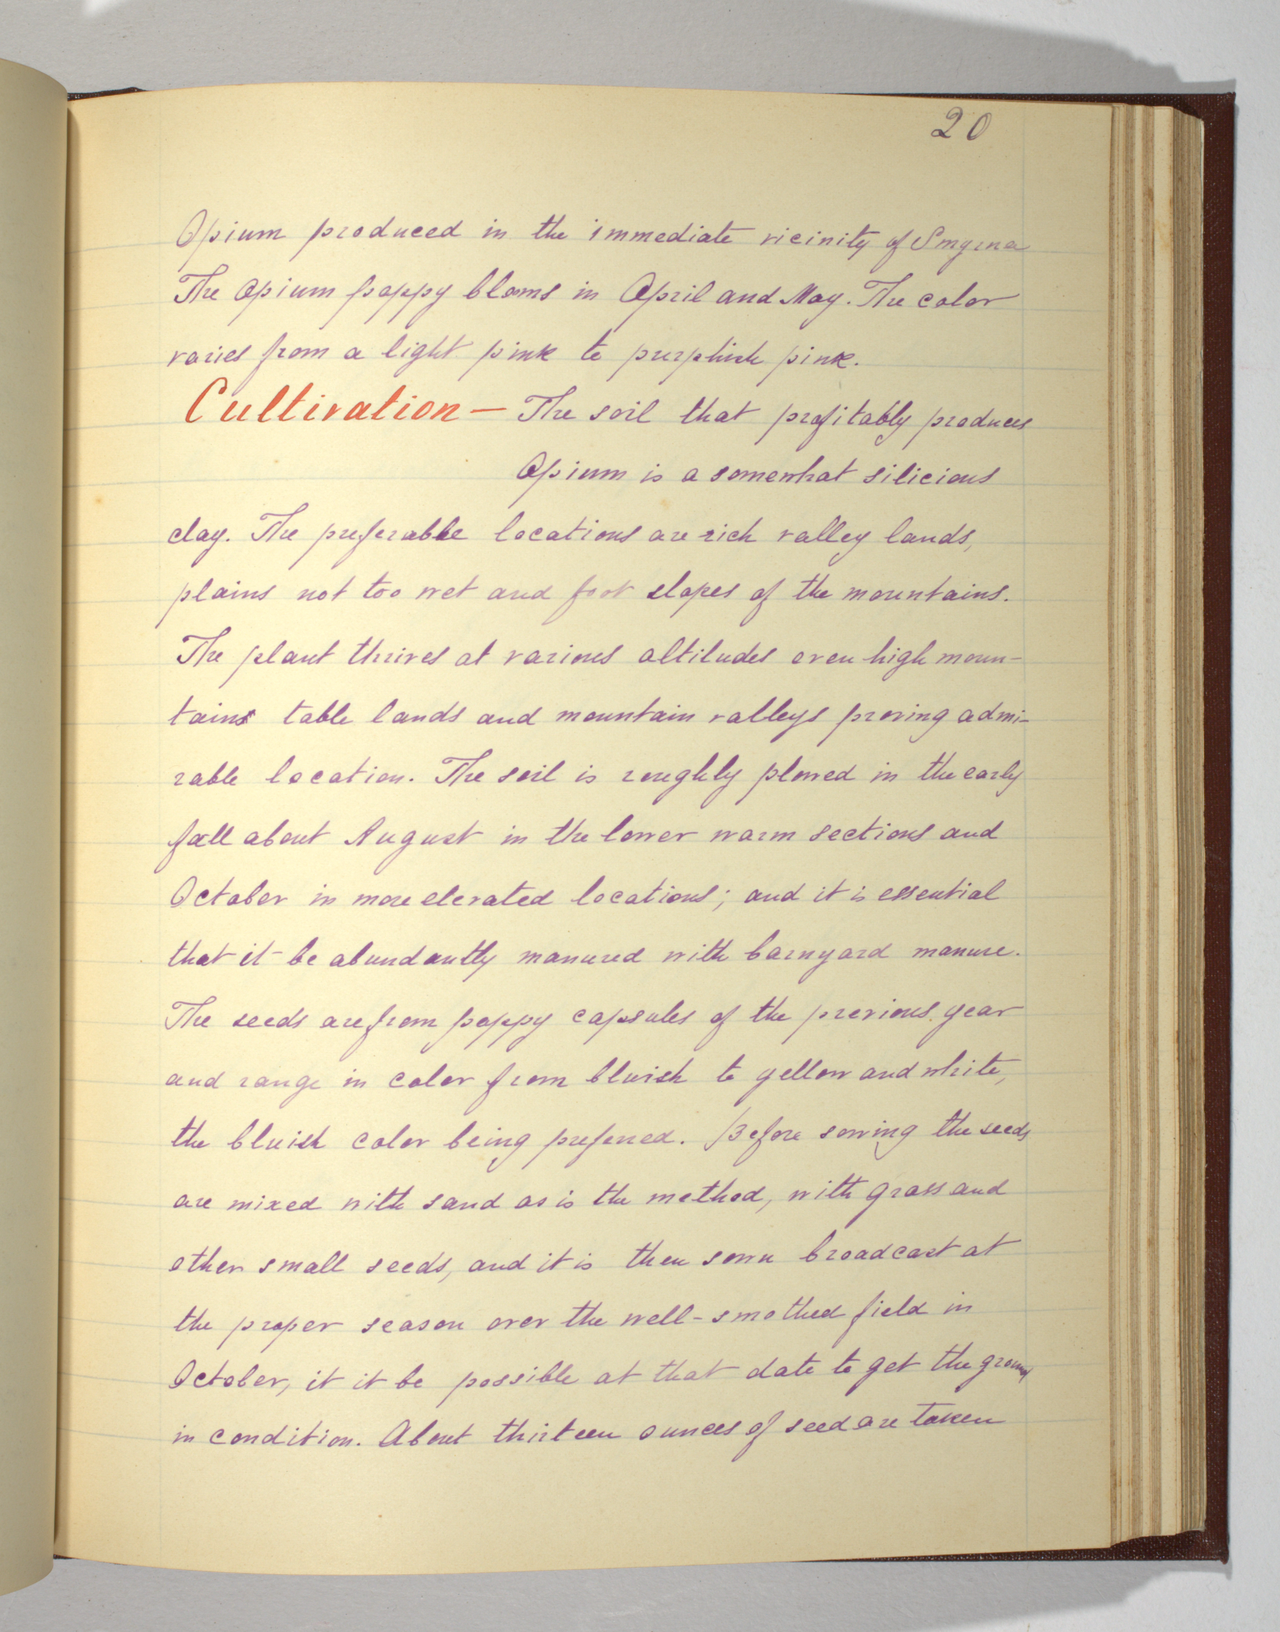 20
Opium produced in the immediate vicinity of Smyrna
The Opium poppy bloms in April and May. The color
varies from a light pink to purplish pink.
Cultivation — The soil that profitably produces
Opium is a somewhat silicious
clay. The preferable locations are rich valley lands,
plains not too wet and foot slopes of the mountains.
The plant thrives at various altitudes even high moun-
tains table lands and mountain valleys proving admi-
rable location. The soil is roughly plowed in the early
fall about August in the lower warm sections and
October in more elevated locations; and it is essential
that it be abundantly manured with barnyard manure.
The seeds are from poppy capsules of the previous year
and range in color from bluish to yellow and white,
the bluish color being preferred. Before sowing the seeds
are mixed with sand as is the method, with grass and
other small seeds, and it is then sown broadcast at
the proper season over the well-smothed field in
October, it it be possible at that date to get the ground
in condition. About thirteen ounces of seed are taken